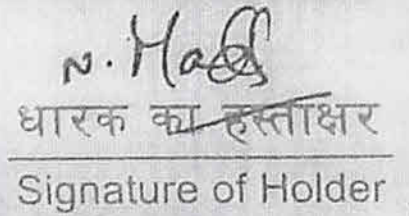 N. 
धारक का हस्ताक्षर
Signature of Holder